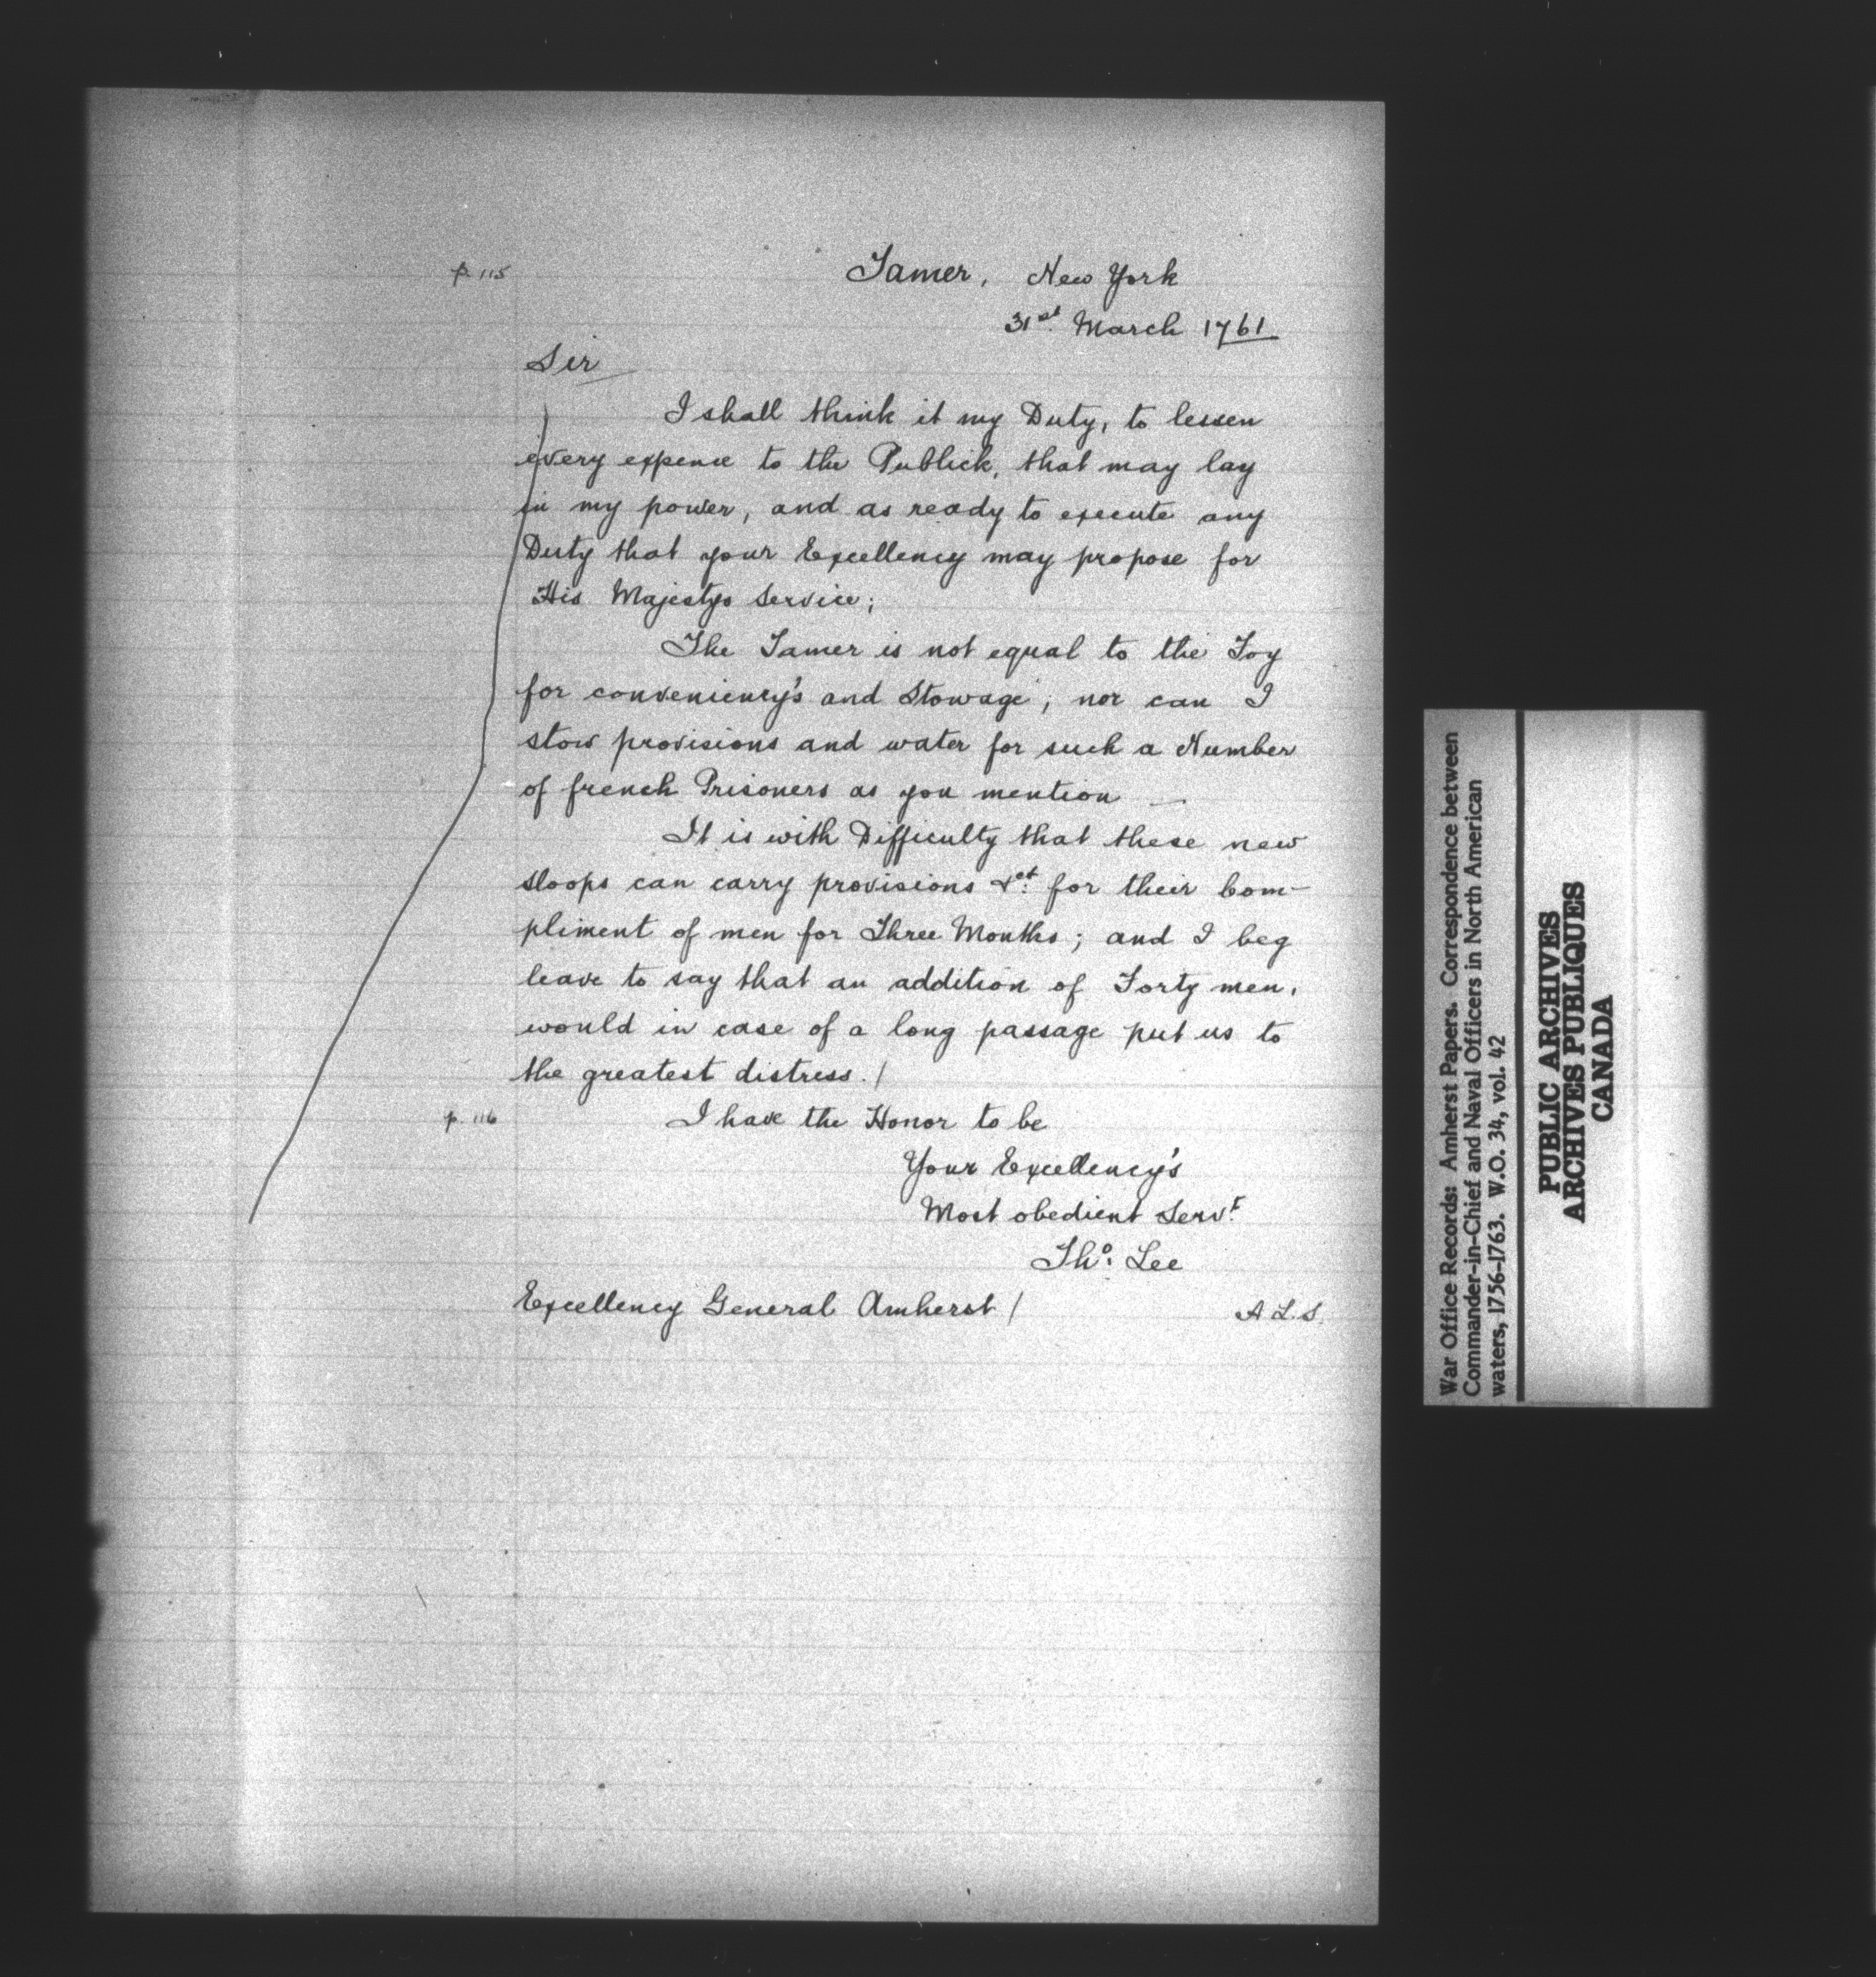 p. 115
Tamer, New York
31st March 1761
Sir
I shall think it my Duty, to lessen
every expence to the Publick, that may lay
in my power, and as ready to execute any
Duty that your Excellency may propose for
His Majestys Service;
The Tamer is not equal to the Foy
for conveniency's and Stowage, nor can I
stow provisions and water for such a Number
of french Prisoners as you mention —
It is with Difficulty that these new
sloops can carry provisions &ct for their Com-
pliment of men for Three Months; and I beg
leave to say that an addition of Forty men,
would in case of a long passage put us to
the greatest distress. /
p. 116
I have the Honor to be
Your Excellency's
Most obedient Servt.
Tho: Lee
Excellency General Amherst /
A.L.S.
War Office Records: Amherst Papers. Correspondence between
Commander-in-Chief and Naval Officers in North American
waters, 1756-1763. W.O. 34, vol. 42
PUBLIC ARCHIVES
ARCHIVES PUBLIQUES
CANADA